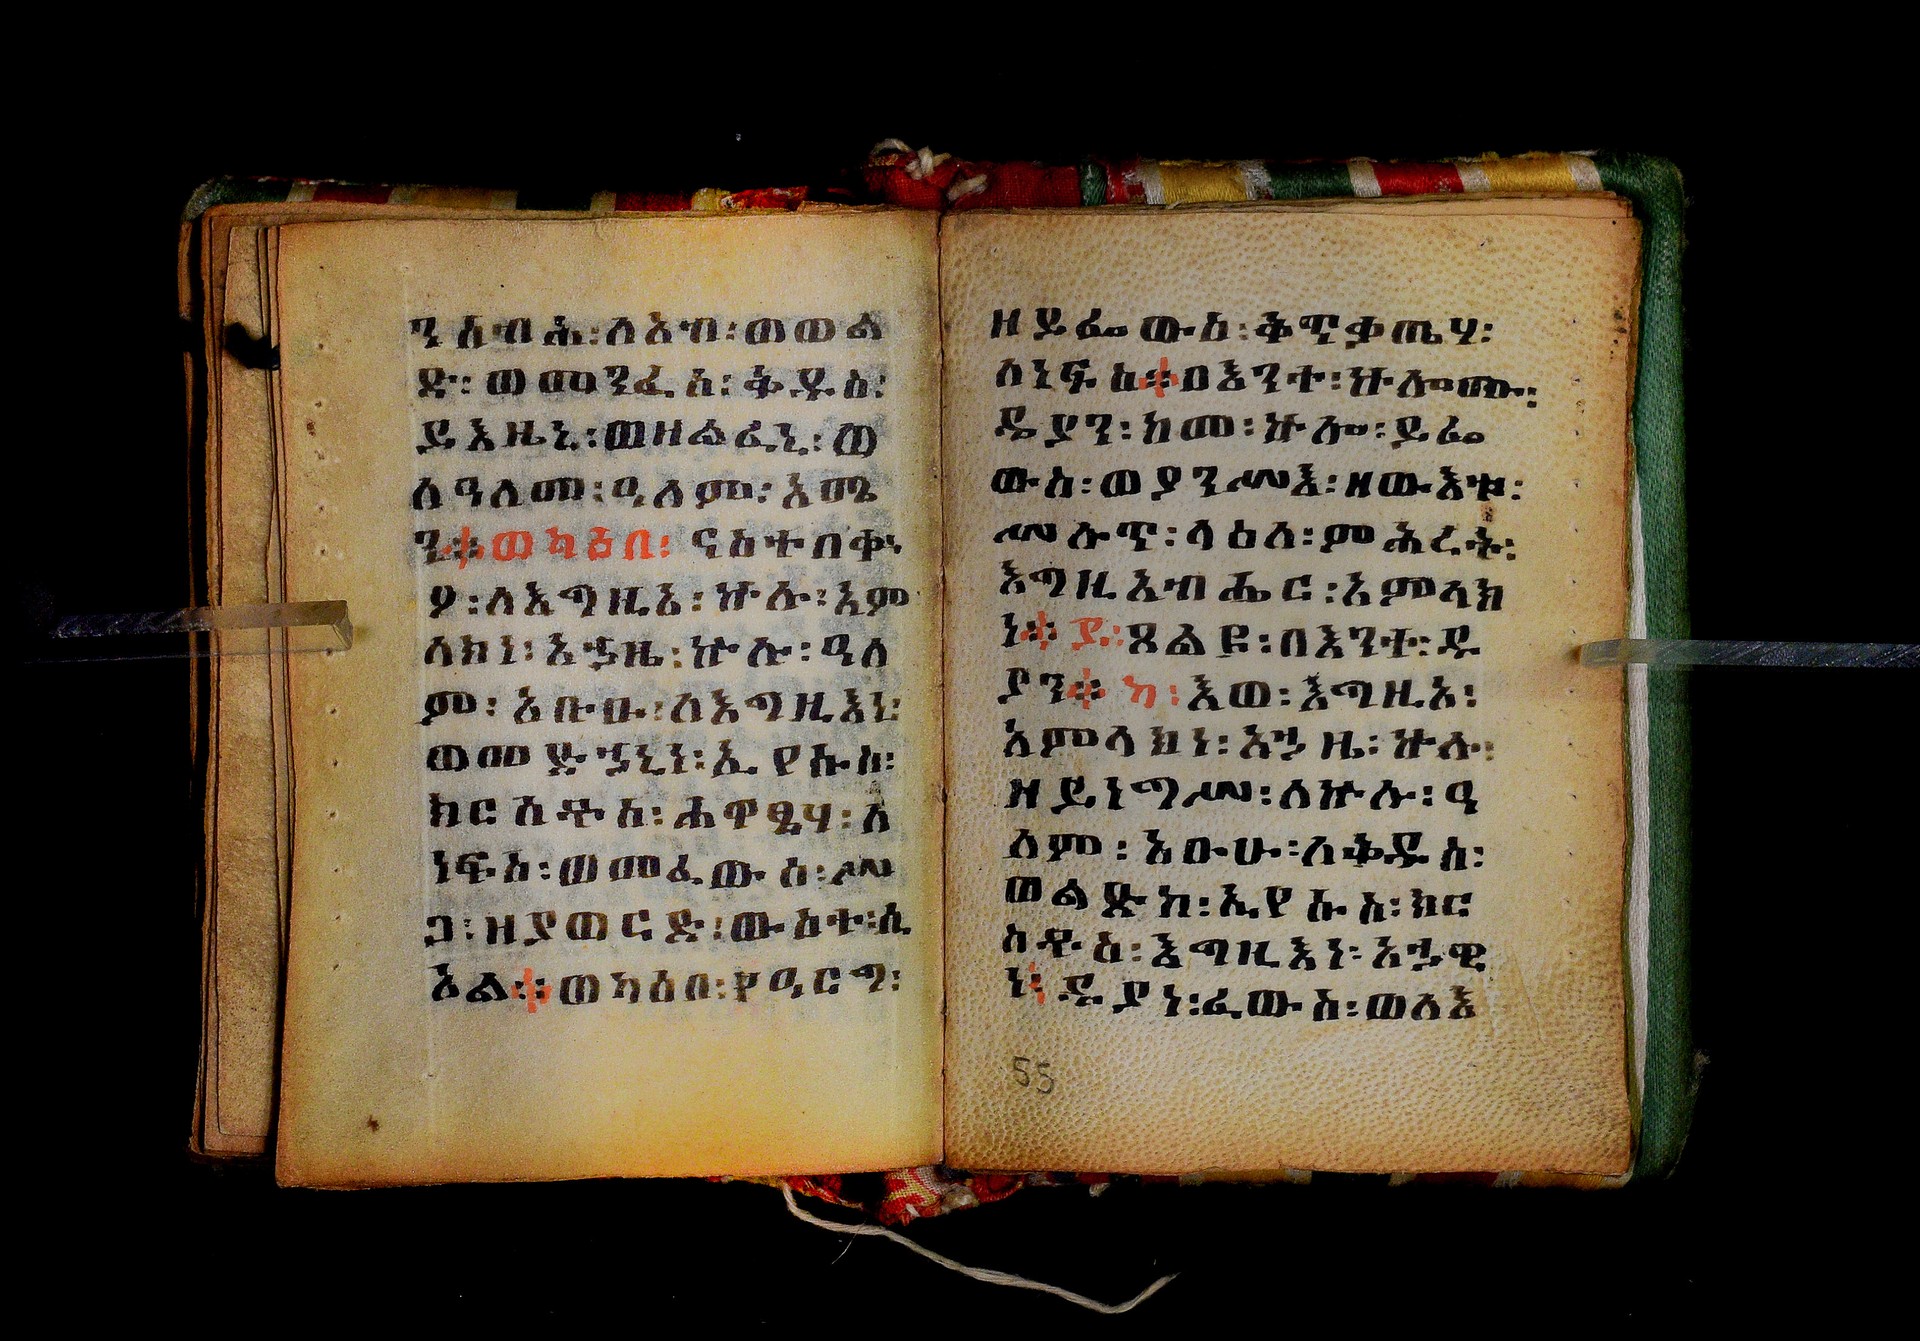 ን ስብሐ፡ ለአብ፡ ወወል
ድ፡ ወመንፈስ፡ ቅዱስ፡
ይእዜኒ፡ ወዘልፈኒ፡ ወ
ለዓለመ፡ ዓለም፡ አሜ
ን። ወካዕበ፡ ናስተበቍ
ዖ፡ ለእግዚአ፡ ኵሉ፡ አም
ላክነ፡ አኃዜ፡ ኵሉ፡ ዓለ
ም፡ አቡሁ፡ ለእግዚእነ፡
ወመድኃኒነ፡ ኢየሱስ፡
ክርስቶስ፡ ሐዋፂሃ፡ ለ
ነፍስ፡ ወመፈውስ፡ ሥ
ጋ፡ ዘያወርድ፡ ውስተ፡ ሲ
ኦል። ወካዕበ፡ የዓርግ፡
ዘይፌውስ፡ ቅጥቃጤሃ፡
ለነፍስ። በእንተ፡ ኵሎሙ፡
ዱያን፡ ከመ፡ ኵሎ፡ ይፌ
ውስ፡ ወያንሥእ፡ ዘውእቱ፡
ሥሉጥ፡ ላዕለ፡ ምሕረት፡
እግዚአብሔር፡ አምላክ
ነ። ይ፡ ጸልዩ፡ በእንተ፡ ዱ
ያን። ካ፡ እወ፡ እግዚአ፡
አምላክነ፡ አኃዜ፡ ኵሉ፡
ዘይነግሥ፡ ለኵሉ፡ ዓ
ለም፡ አቡሁ፡ ለቅዱስ፡
ወልድከ፡ ኢየሱስ፡ ክር
ስቶስ፡ እግዚእነ፡ አኃዊ
ነ፡ ዱያነ፡ ፈውስ፡ ወለእ
55